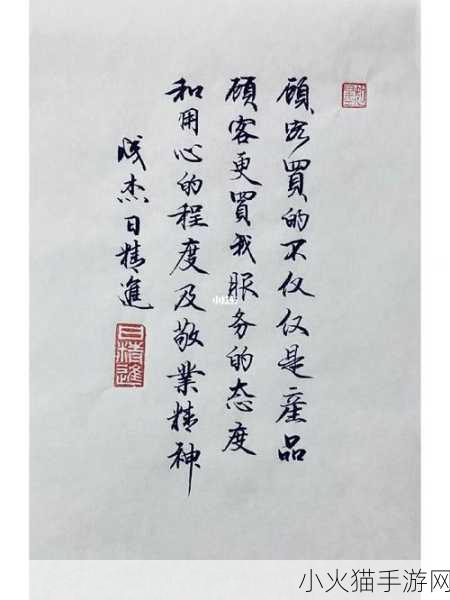 顾客買的不仅仅是産品
顾客更買我服务的态度
和用心的程度及敬業精神
成杰日精進
日精進
小火猫手游网